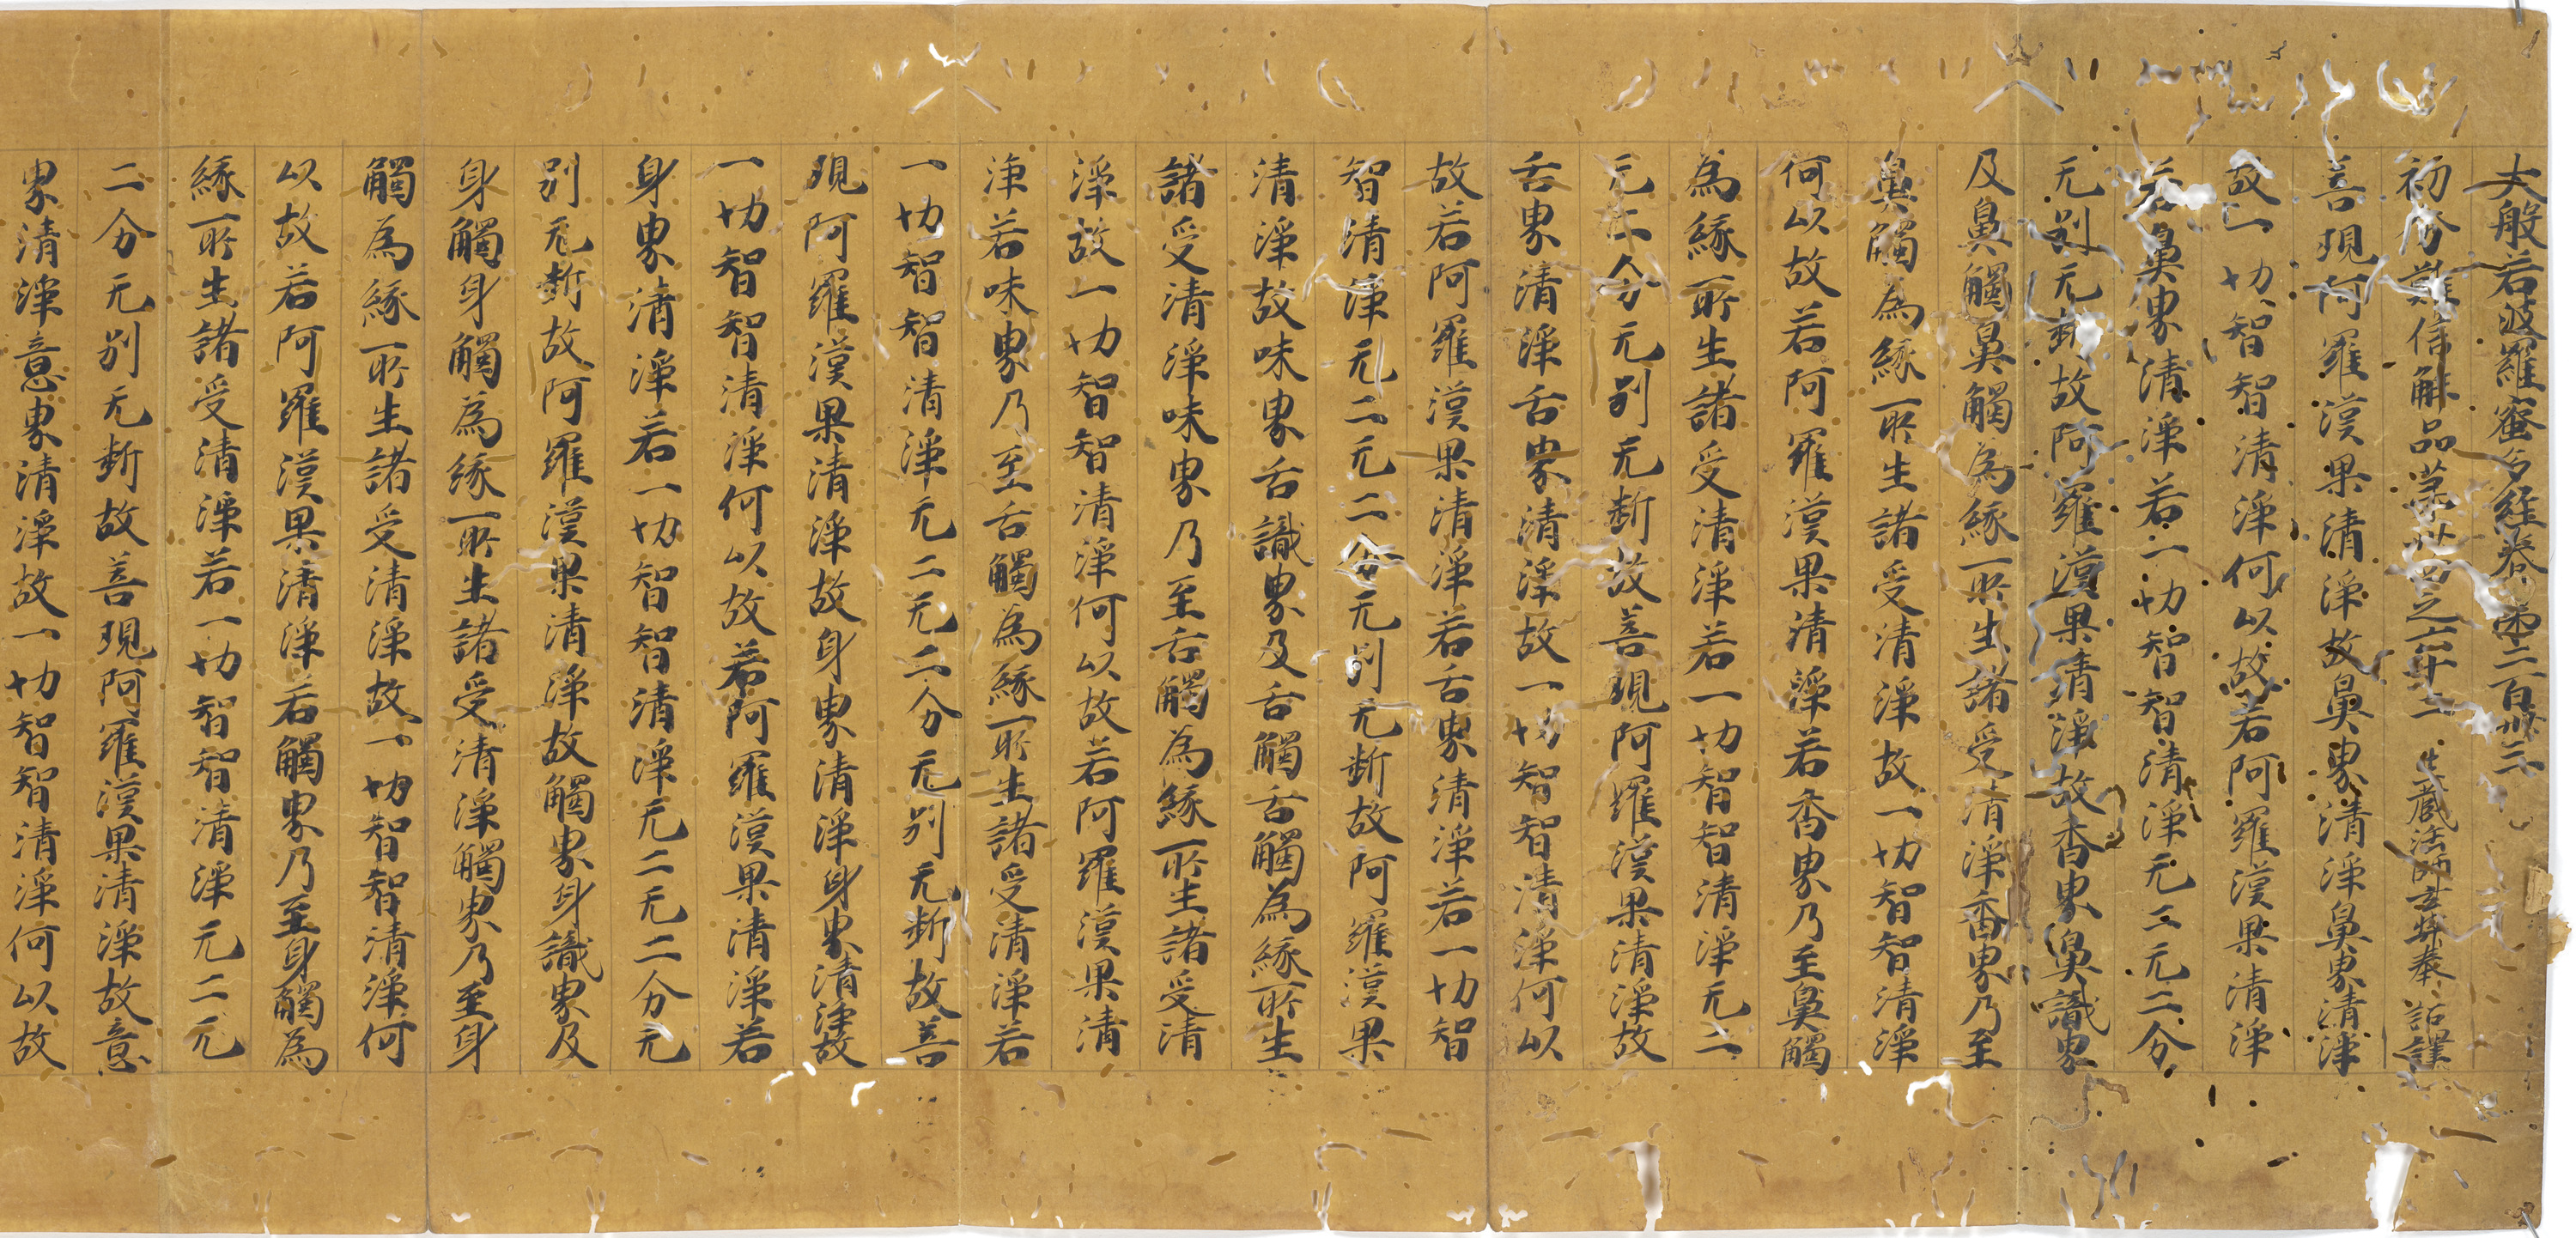 大般若波羅蜜多經卷第二百卅三
初分難信解品第卅四之五十二 三藏法師玄奘奉 詔譯
善現阿羅漢果清淨故鼻界清淨鼻界清淨
故一切智智清淨何以故若阿羅漢果清淨
若鼻界清淨若一切智智清淨无二无二分
无別无斷故阿羅漢果清淨故香界鼻識界
及鼻觸鼻觸為緣所生諸受清淨香界乃至
鼻觸為緣所生諸受清淨故一切智智清淨
何以故若阿羅漢果清淨若香界乃至鼻觸
為緣所生諸受清淨若一切智智清淨无二
无二分无別无斷故善現阿羅漢果清淨故
舌界清淨舌界清淨故一切智智清淨何以
故若阿羅漢果清淨若舌界清淨若一切智
智清淨无二无二分无別无斷故阿羅漢果
清淨故味界舌識界及舌觸舌觸為緣所生
諸受清淨味界乃至舌觸為緣所生諸受清
淨故一切智智清淨何以故若阿羅漢果清
淨若味界乃至舌觸為緣所生諸受清淨若
一切智智清淨无二无二分无別无斷故善
現阿羅漢果清淨故身界清淨身界清淨故
一切智智清淨何以故若阿羅漢果清淨若
身界清淨若一切智智清淨无二无二分无
別无斷故阿羅漢果清淨故觸界身識界及
身觸身觸為緣所生諸受清淨觸界乃至身
觸為緣所生諸受清淨故一切智智清淨何
以故若阿羅漢果清淨若觸界乃至身觸為
緣所生諸受清淨若一切智智清淨无二无
二分无別无斷故善現阿羅漢果清淨故意
界清淨意界清淨故一切智智清淨何以故